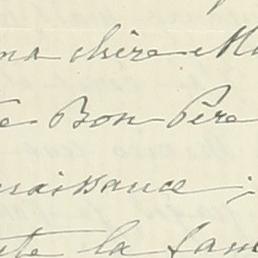 ma chère M
Bon Père
naissance ;
la fam